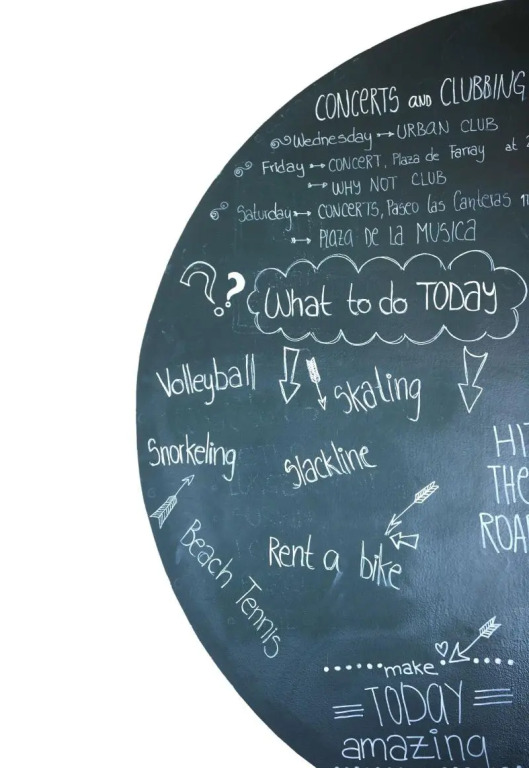 CONCERTS AND CLUBBING
Wednesday → URBAN CLUB
Friday → CONCERT, Plaza de Farray at
→ WHY NOT CLUB
Saturday → CONCERTS, Paseo las Canteras
→ PLAZA DE LA MUSICA
?? What to do TODAY
Volleyball
Skating
Snorkeling
Slackline
HIT
THE
ROA
Rent a bike
Beach Tennis
......make.....
TODAY
amazing